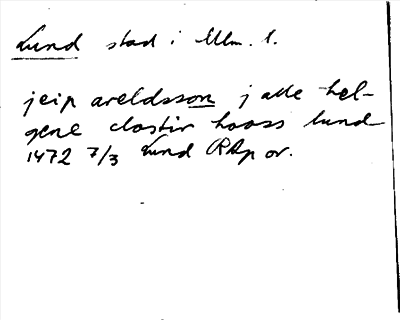 Lund stad i Mlm. l.
jeip areldsson j alle hel-
gene closter hooss lund
1472 7/3 Lund RAp or.